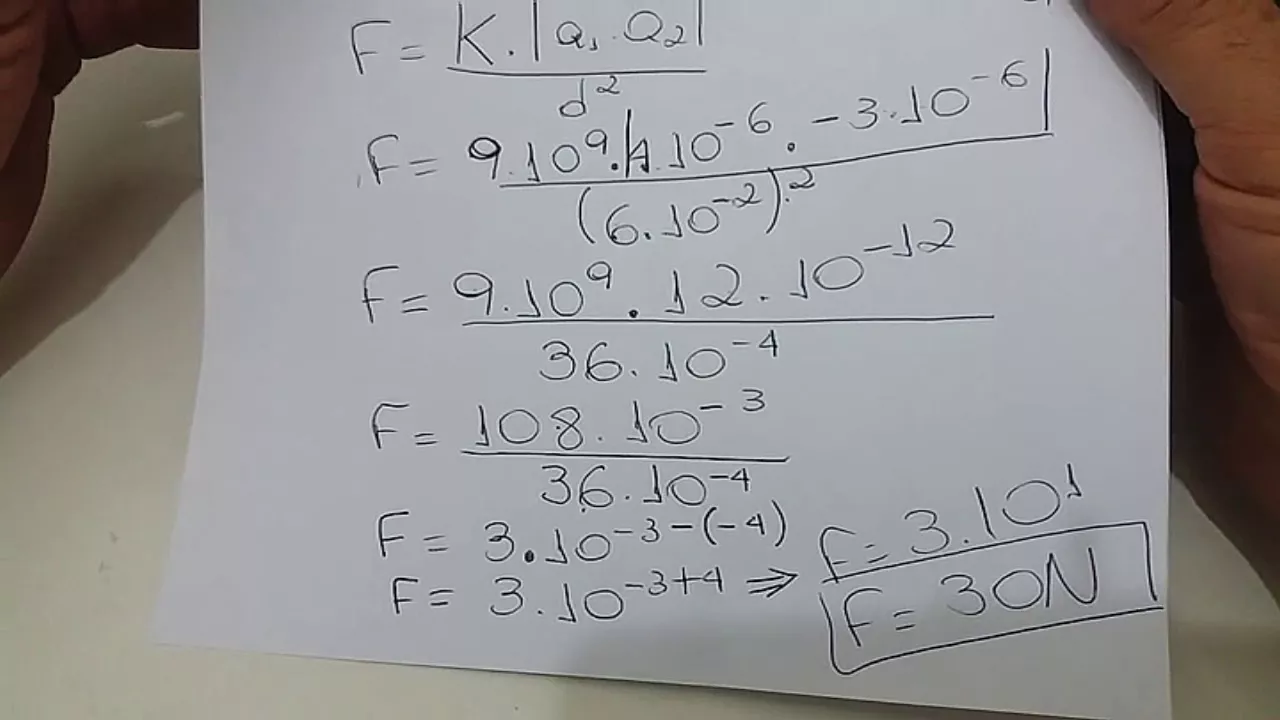 F = K.|Q₁.Q₂| / d²
F = 9.10⁹.|4.10⁻⁶.-3.10⁻⁶| / (6.10⁻²).²
F = 9.10⁹.12.10⁻¹² / 36.10⁻⁴
F = 108.10⁻³ / 36.10⁻⁴
F = 3.10⁻³⁻⁽⁻⁴⁾
F = 3.10⁻³⁺⁴ ⇒ F = 3.10¹
F = 30N